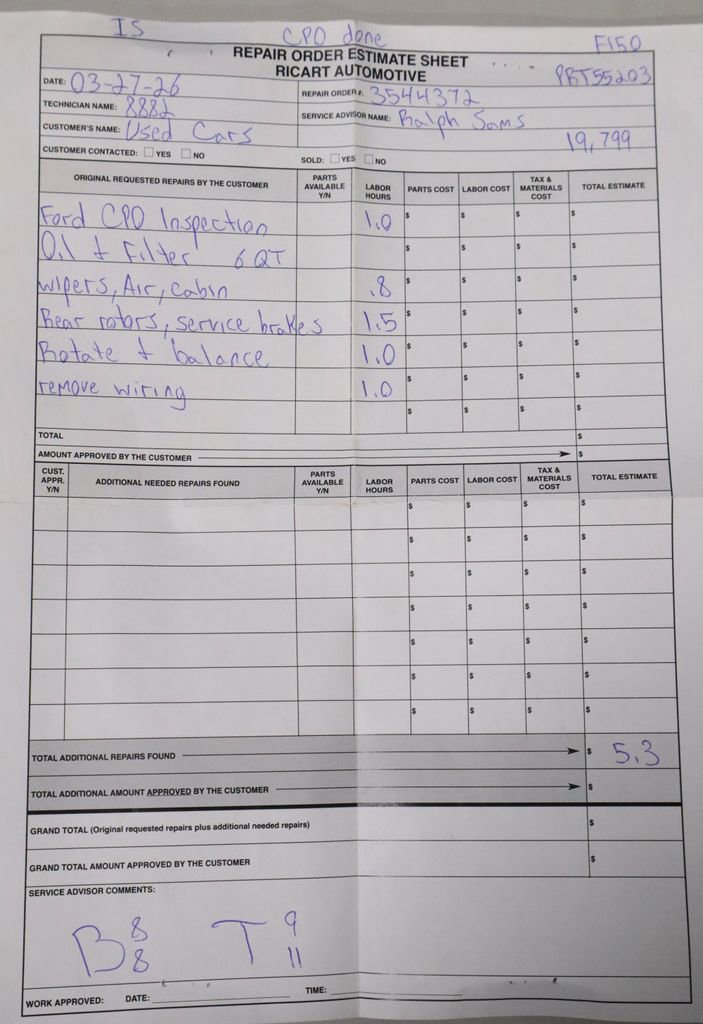 IS CPO done F150
REPAIR ORDER ESTIMATE SHEET
RICART AUTOMOTIVE
PBT55203
DATE: 03-27-26
REPAIR ORDER #: 3544372
TECHNICIAN NAME: 8882
SERVICE ADVISOR NAME: Ralph Sams
CUSTOMER'S NAME: Used Cars
19,799
CUSTOMER CONTACTED: YES NO
SOLD: YES NO
ORIGINAL REQUESTED REPAIRS BY THE CUSTOMER PARTS AVAILABLE Y/N LABOR HOURS PARTS COST LABOR COST TAX & MATERIALS COST TOTAL ESTIMATE
Ford CPO Inspection 1.0 $ $ $ $
Oil + Filter 6 QT $ $ $ $
wipers, Air, cabin .8 $ $ $ $
Rear rotors, service brakes 1.5 $ $ $ $
Rotate + balance 1.0 $ $ $ $
remove wiring 1.0 $ $ $ $
$ $ $ $
TOTAL $
AMOUNT APPROVED BY THE CUSTOMER $
CUST. APPR. Y/N ADDITIONAL NEEDED REPAIRS FOUND PARTS AVAILABLE Y/N LABOR HOURS PARTS COST LABOR COST TAX & MATERIALS COST TOTAL ESTIMATE
$ $ $ $
$ $ $ $
$ $ $ $
$ $ $ $
$ $ $ $
$ $ $ $
$ $ $ $
TOTAL ADDITIONAL REPAIRS FOUND $ 5.3
TOTAL ADDITIONAL AMOUNT APPROVED BY THE CUSTOMER $
GRAND TOTAL (Original requested repairs plus additional needed repairs) $
GRAND TOTAL AMOUNT APPROVED BY THE CUSTOMER $
SERVICE ADVISOR COMMENTS:
B 8 8 T 9 11
WORK APPROVED: DATE: TIME: